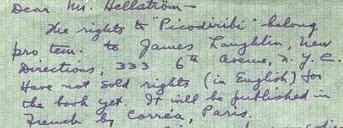 Dear Mr. Hellström—
The rights to "Picodiribi" belong
pro tem. to James Laughlin, New
Directions, 333 6th Avenue, N.Y.C.
Have not sold rights (in English) for
the book yet. It will be published in
French by Corrêa, Paris.